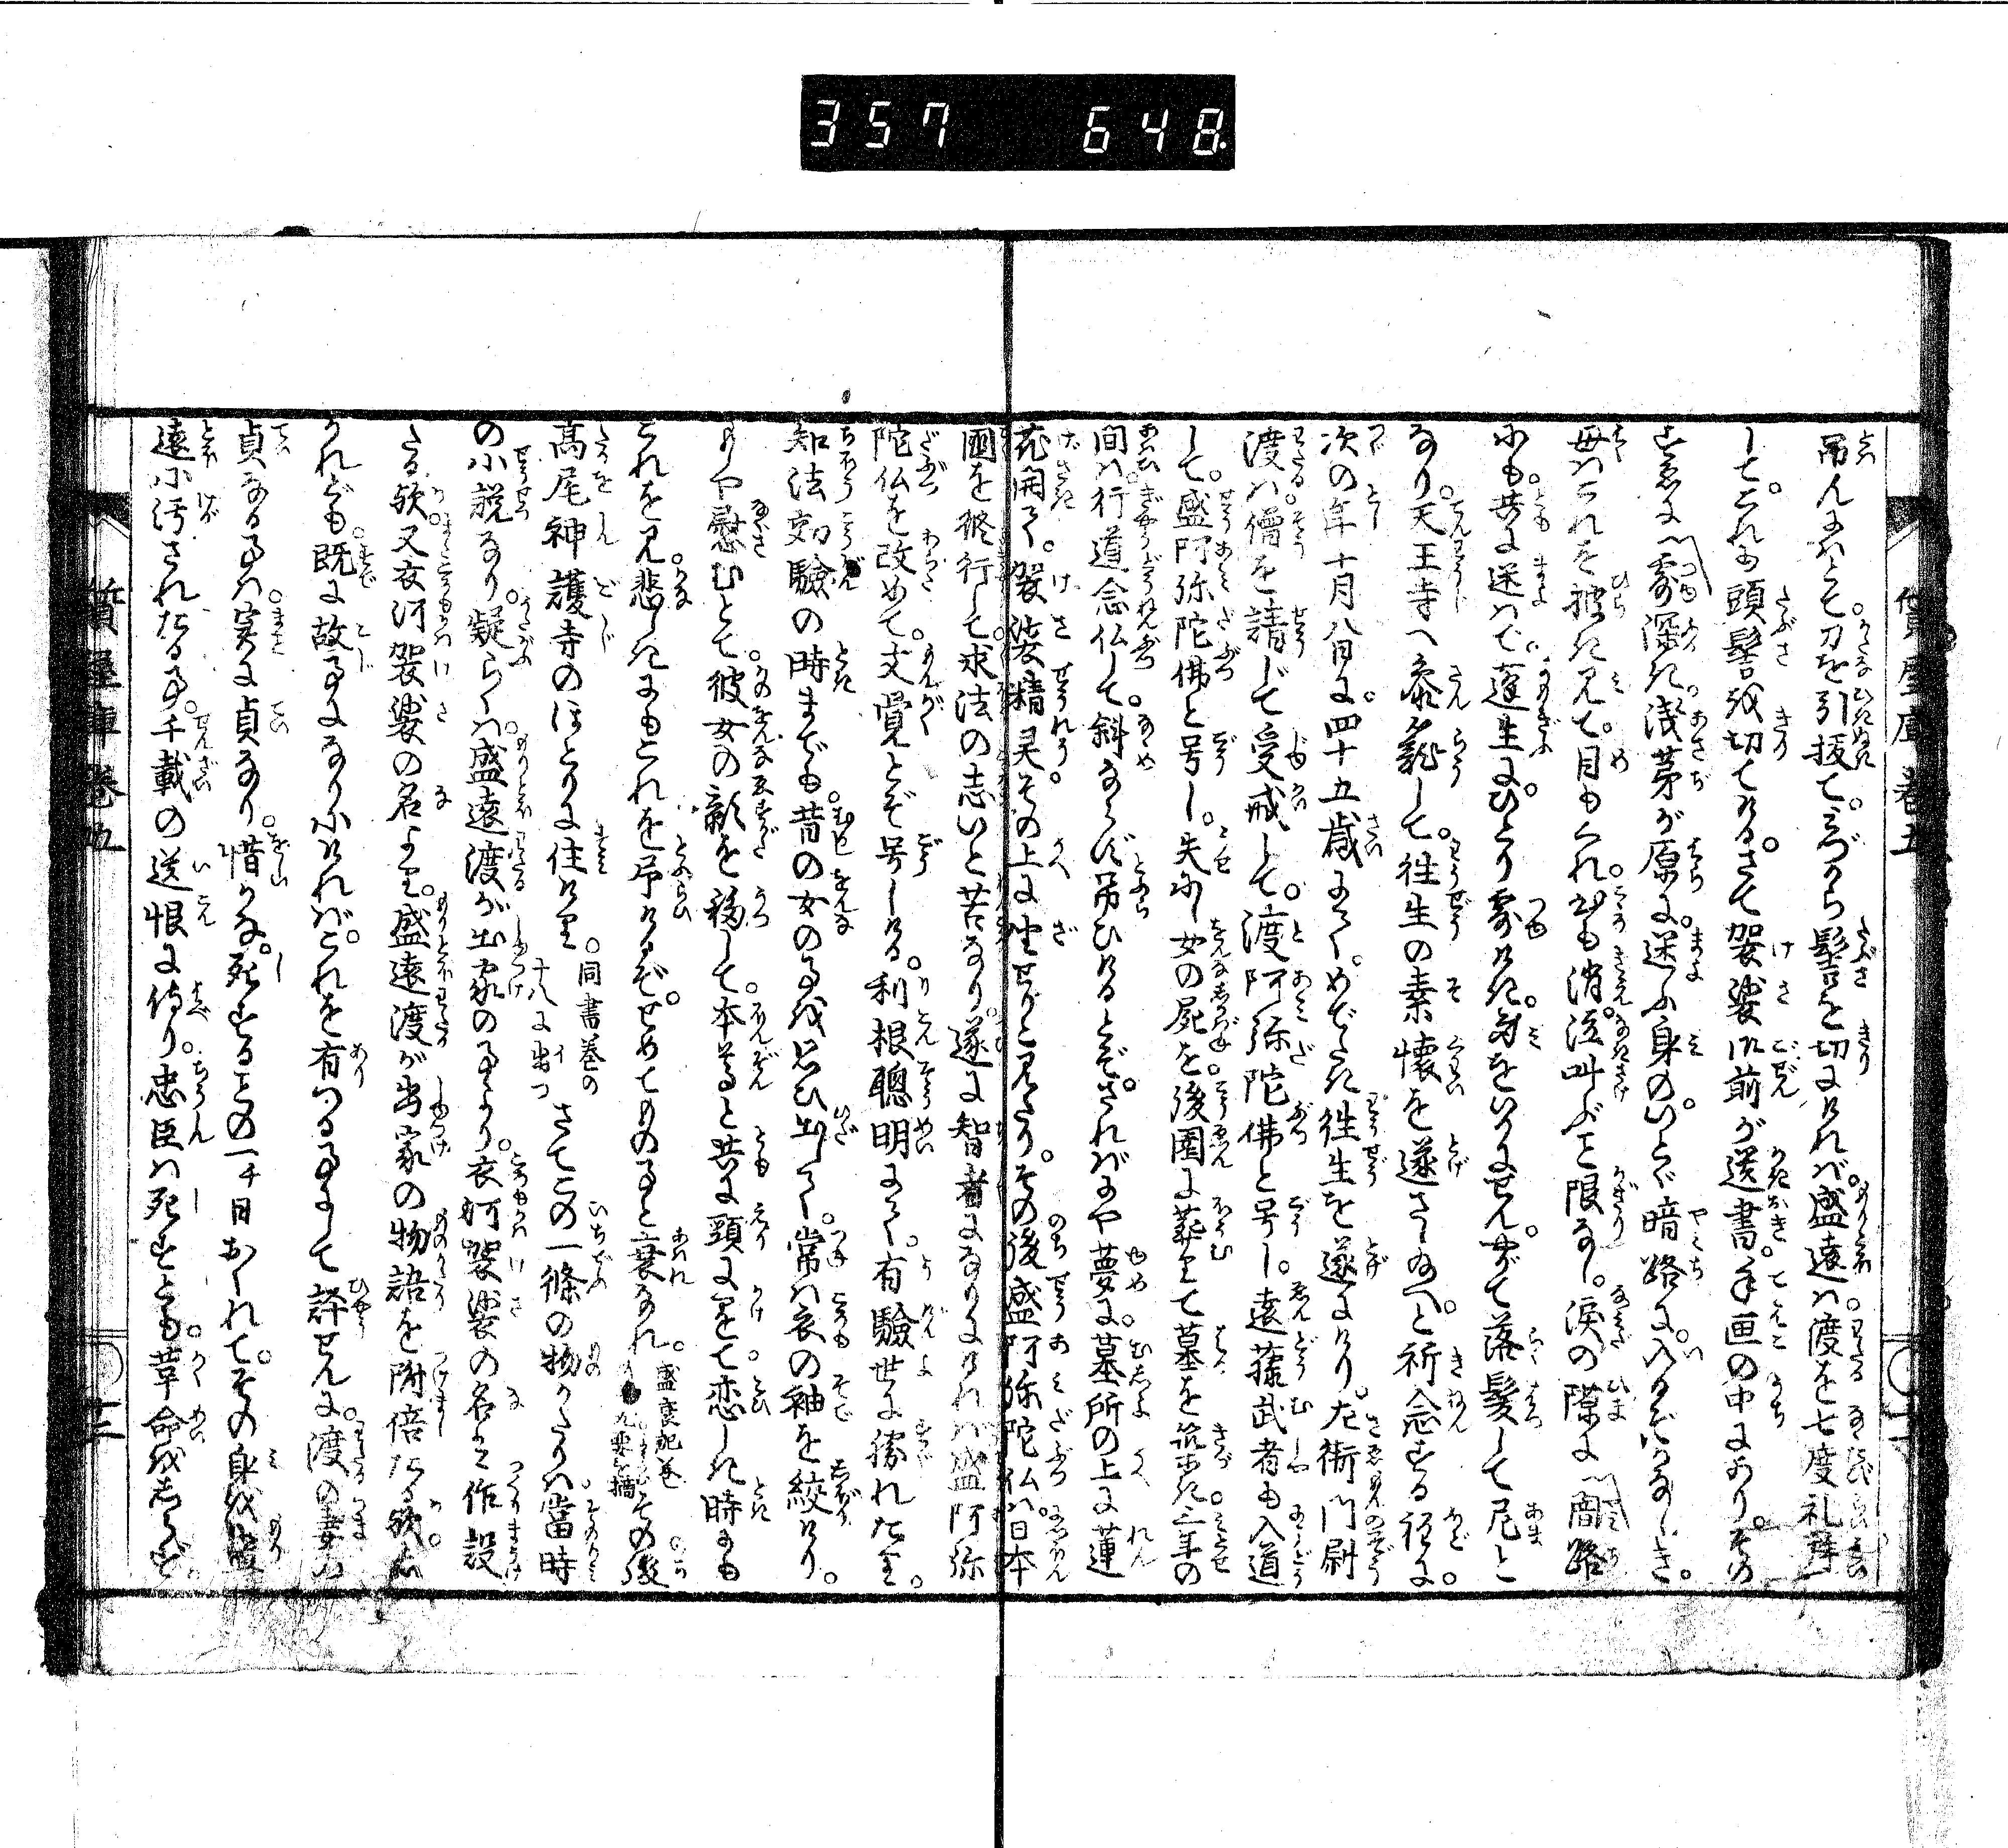 357 648
質屋庫 巻五
吊んといひて。刀を引抜て。みづから髻を切にければ。盛遠は。渡を七度礼拝
して。これも頭髻を切てけり。さて袈裟御前が送書。手函の中にあり。その
すゑに、露深き浅茅が原に。迷ふ身の。いとゞ暗路に。入るぞかなしき。
母はこれを披き見て。目もくれ。心も消。泣叫ぶこと限なし。涙の隙に、闇路
にも。共に迷はで。蓬生に。ひとり露けき。身をいかにせん。やがて落髪して尼と
なり。天王寺へ参籠して。往生の素懐を遂させ給へ。と祈念する程に。
次の年十月八日に。四十五歳にて。めでたき往生を遂にけり。左衛門尉
渡は。僧を請じて受戒して。渡阿弥陀佛と号し。遠藤武者も入道
して。盛阿弥陀佛と号し。失にし女の屍を。後園に葬りて墓を築き。三年の
間は。行道念仏して。斜ならず吊ひけるとぞ。さればにや夢に。墓所の上に蓮
花開て。袈裟精灵その上に坐せりと見たり。その後盛阿弥陀仏は。日本
國を修行して。求法の志いと苦なり。遂に智者になりにければ。盛阿弥
陀仏を改めて。文覚とぞ号しける。利根聰明にて。有驗世に勝れたり。
知法効驗の時までも。昔の女の事を思ひ出して。常は衣の袖を絞けり。
もしや慰むとて。彼女の影を移して。本尊と共に頸に掛て。恋しき時にも
これを見。悲しきにもこれを弔けるぞ。せめての事と哀なれ。盛衰記巻 九要を摘 その後
高尾神護寺のほとりに住けり。同書巻の 十八に出づ さてこの一條の物がたりは。當時
の小説なり。疑らくは。盛遠渡が出家の事より。衣河袈裟の名を作設
たる歟。又衣河袈裟の名より。盛遠渡が出家の物語を附倍たる歟。
かれども。既に故事になりにければ。これを有つる事にして評せんに。渡の妻は
貞なる事は。実に貞なり。惜かな。死することの一日おくれて。その身を盛
遠に汚されたる事。千載の送恨に侍り。忠臣は死すとも。革命をしらず。
質屋庫 巻五